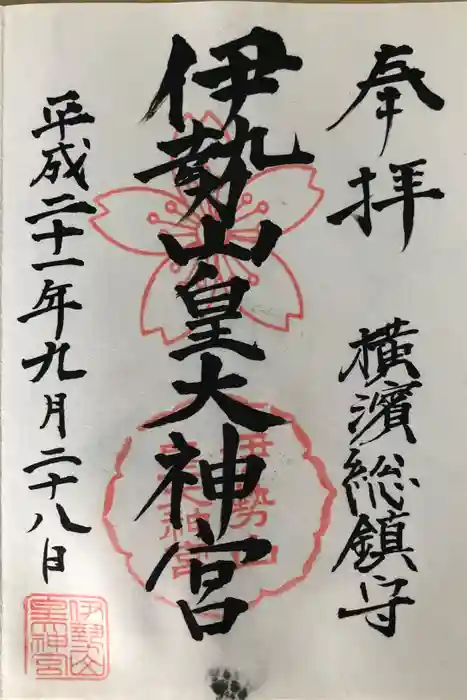 奉拝
横濱総鎮守
伊勢山皇大神宮
伊勢山
皇大神宮
平成二十一年九月二十八日
伊勢山
皇神宮